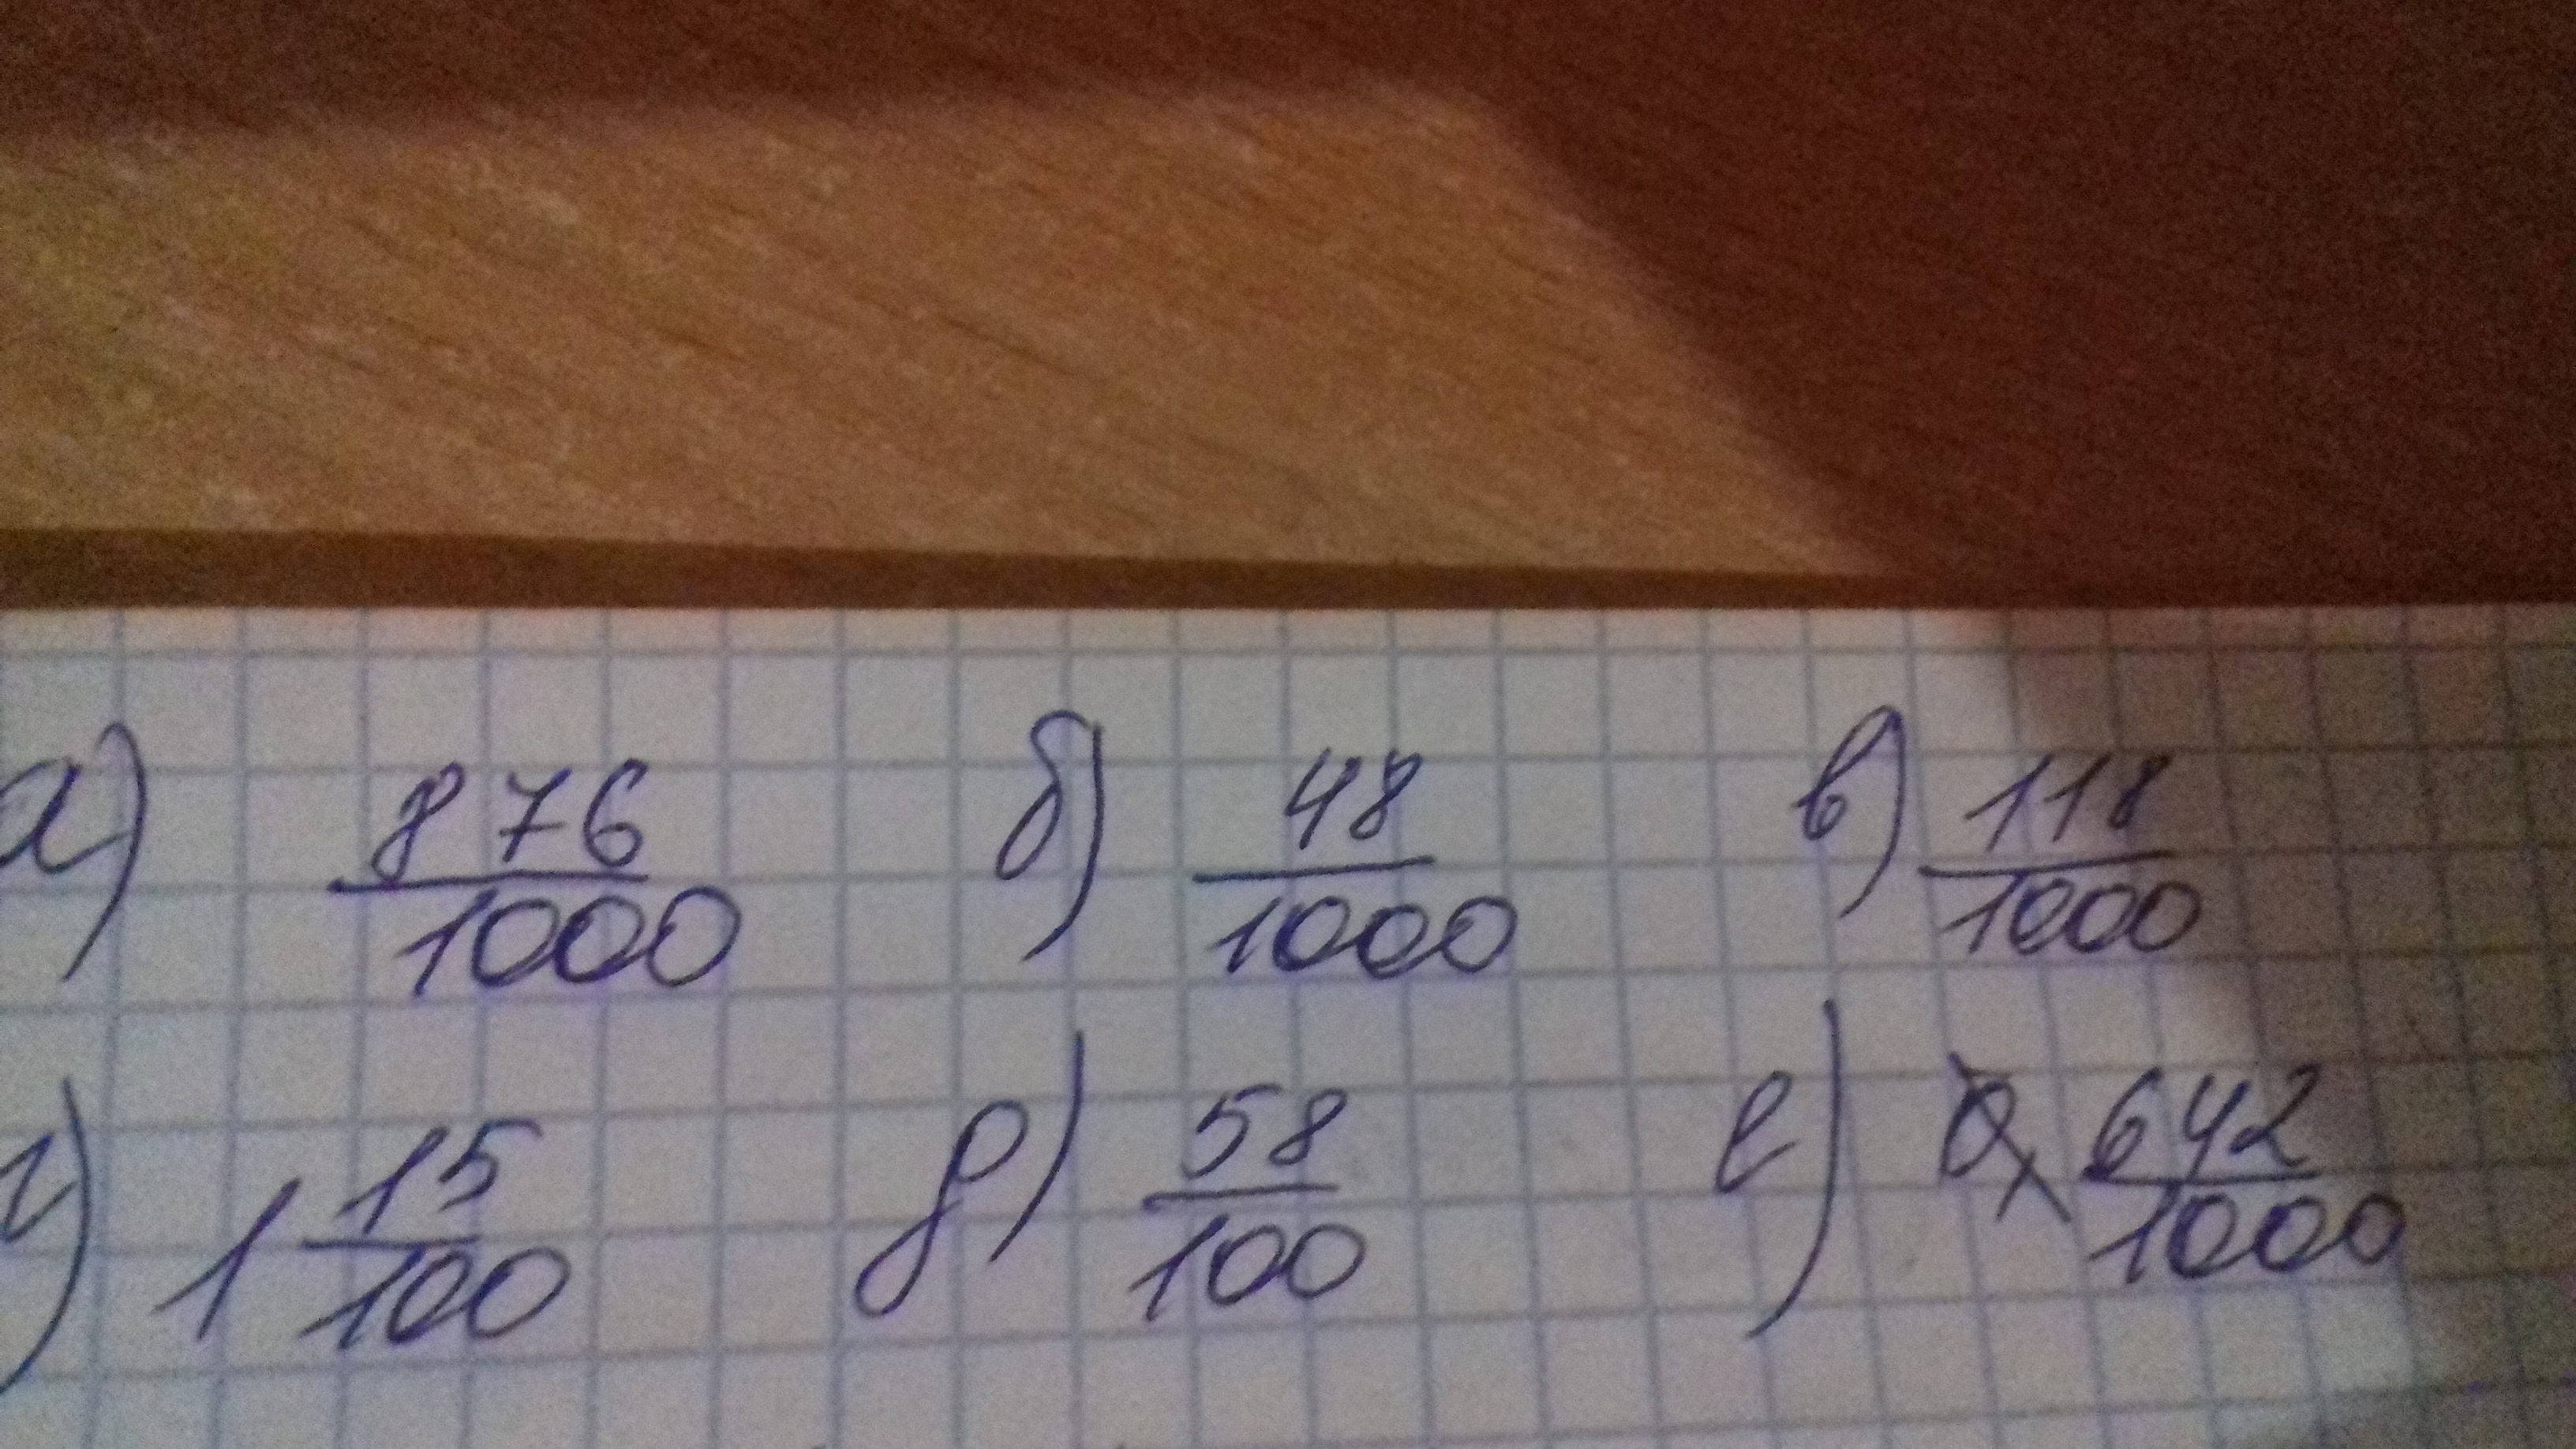 а) 876/1000 б) 48/1000 в) 118/1000
г) 1 15/100 д) 58/100 е) 642/1000